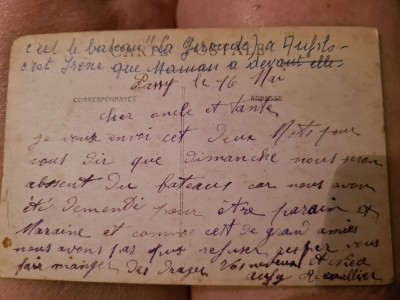 c'est le bateau (La Gironde) a Aufils
CARTE POSTALE
c'est Irène que Maman a devant elle
le 16 Mai
CORRESPONDANCE
ADRESSE
Cher oncle et tante
je vous envoi cet deux Mots pour
vous dir que dimanche nous seron
absent du bateaus car nous avon
été dementi pour être parain et
Maraine et comme cet de grand amies
nous avons pas pus refuser
vous
faire manger des Dragés Vos neveux et nièce